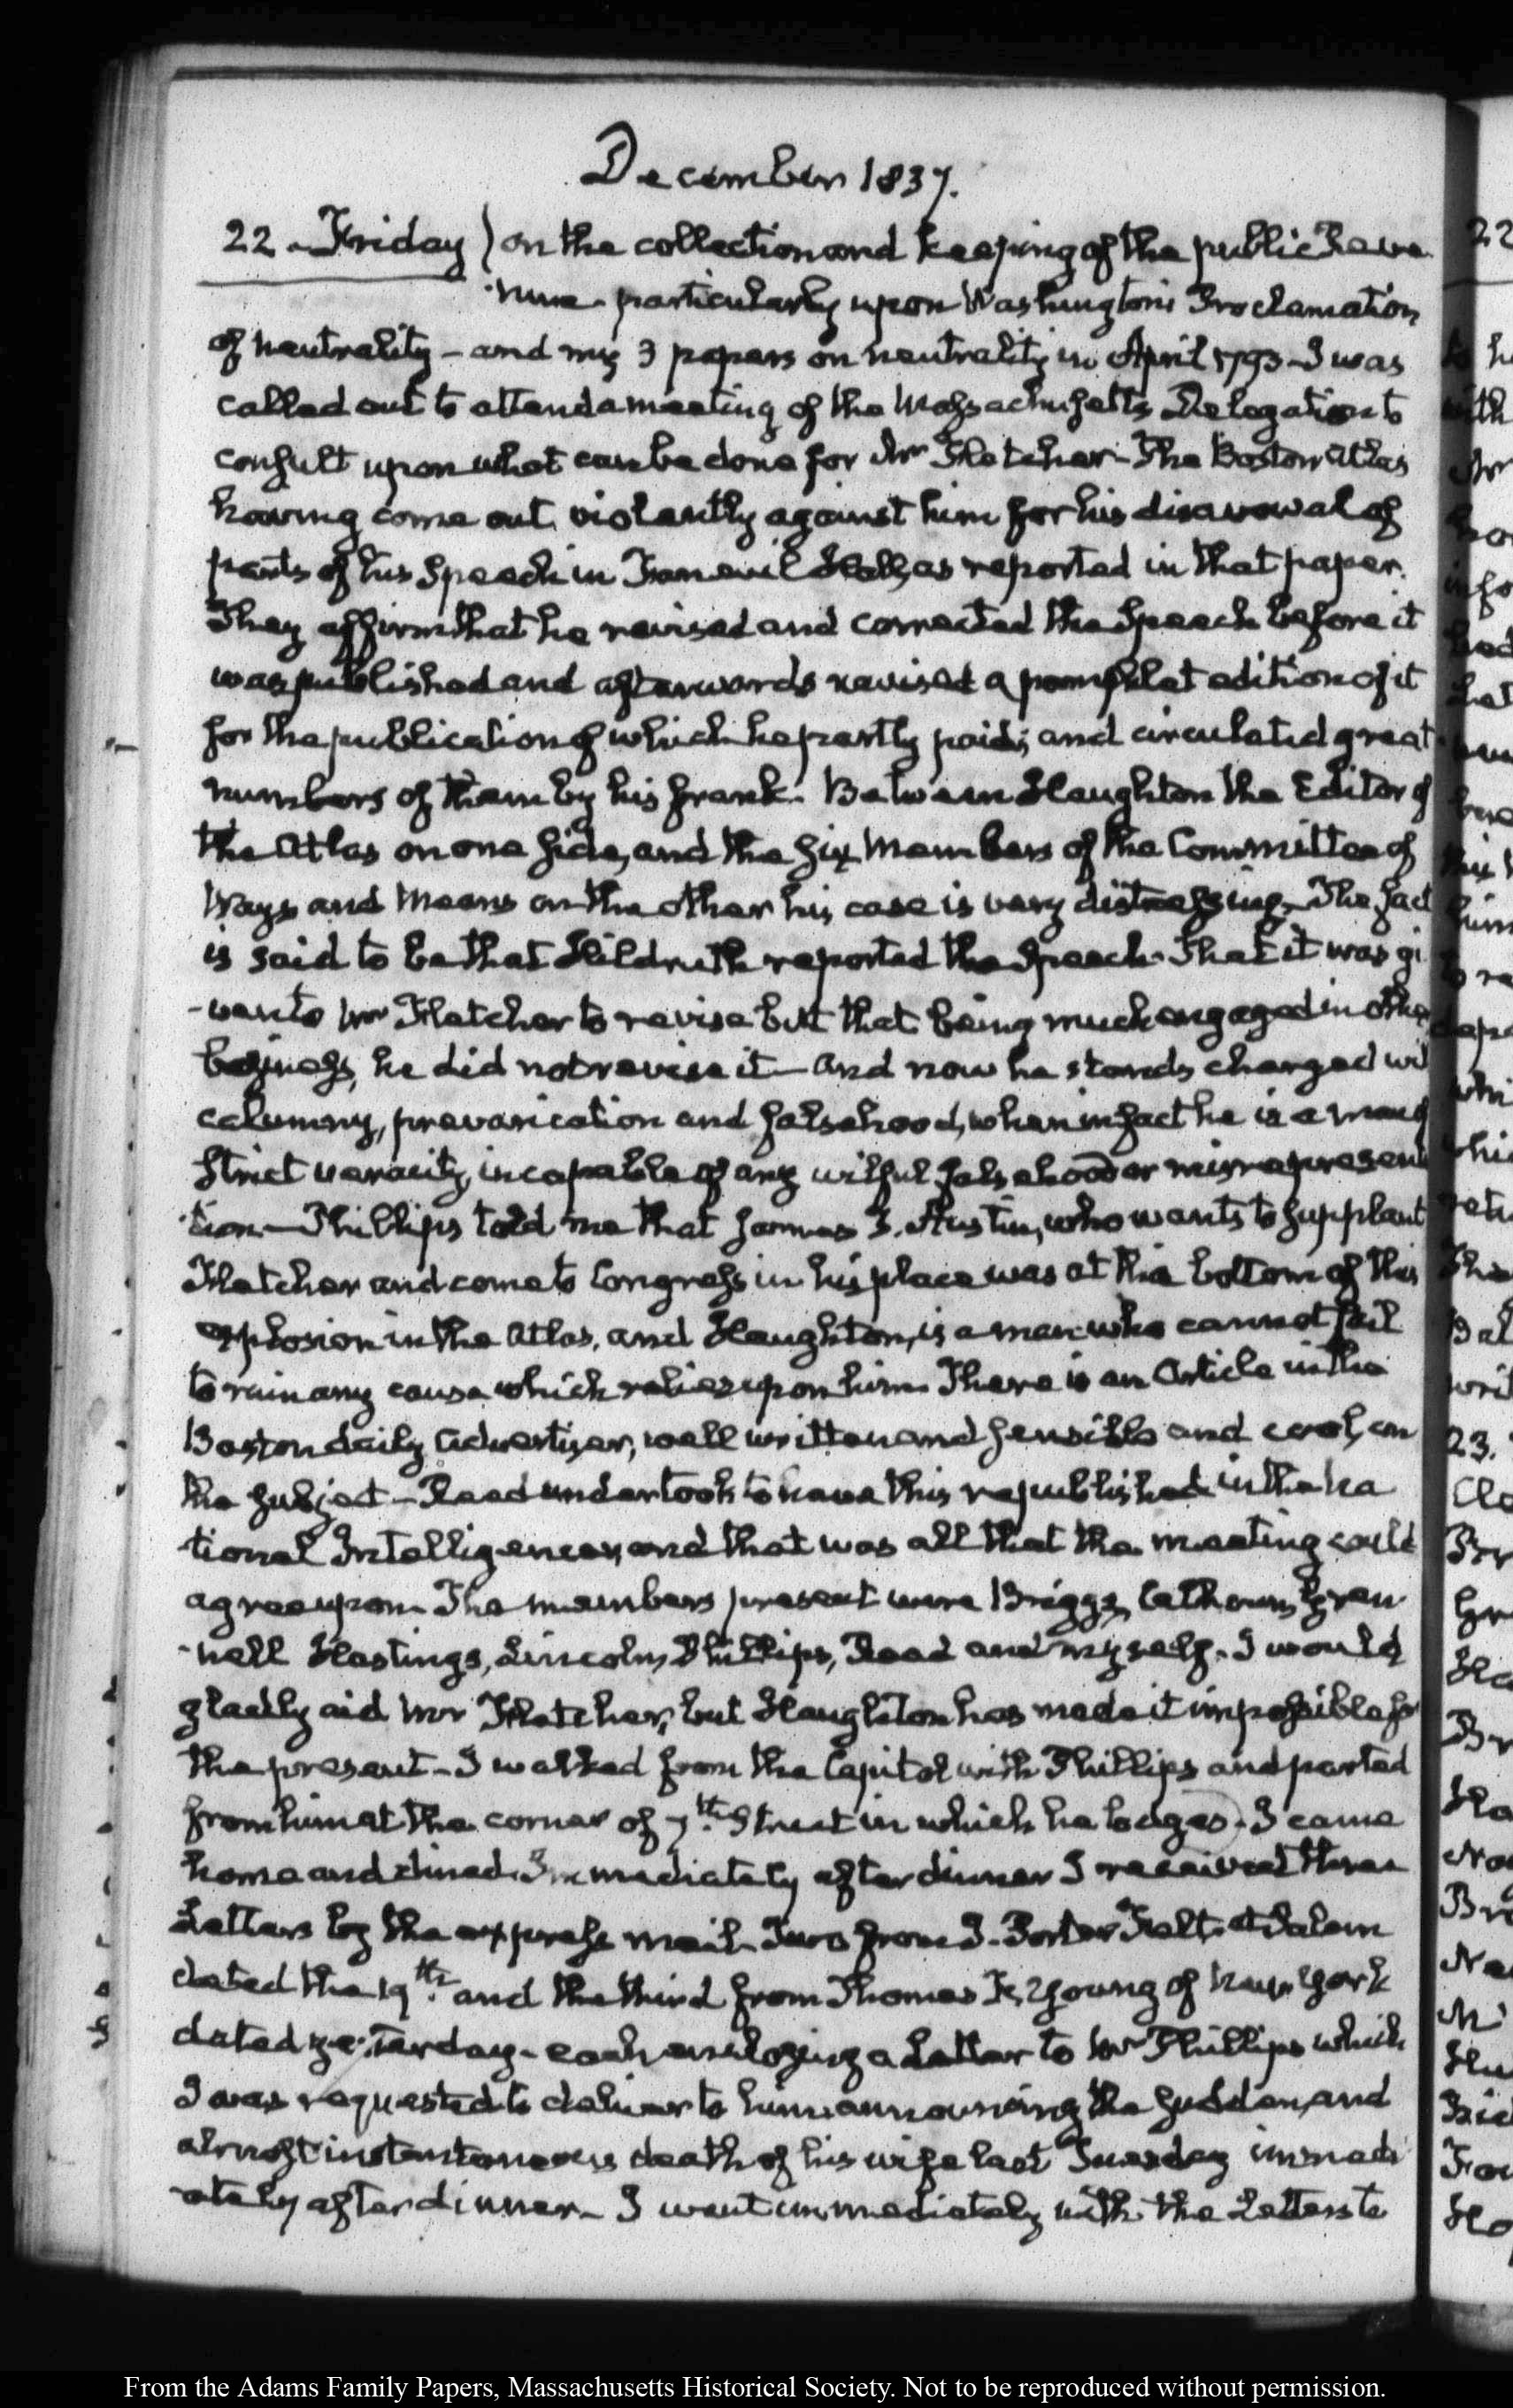 December 1837.
22. Friday) on the collection and keeping of the public Reve
-nue. particularly upon Washington's Proclamation
of neutrality – and my 3 papers on neutrality in April 1793 – I was
called out to attend a meeting of the Massachusetts Delegation to
consult upon what can be done for Mr Fletcher – The Boston Atlas
having come out violently against him for his disavowal of
parts of his Speech in Faneuil Hall, as reported in that paper.
They affirm that he revised and corrected the Speech before it
was published and afterwards revised a pamphlet edition of it
for the publication of which he partly paid; and circulated great
numbers of them by his frank. Between Haughton the Editor of
the Atlas on one side, and the six Members of the Committee of
Ways and Means on the other his case is very distressing. The fact
is said to be that Hildreth reported the Speech. That it was gi
-ven to Mr Fletcher to revise but that being much engaged in other
business, he did not revise it – and now he stands charged wi
calumny, prevarication and falsehood, when in fact he is a man of
strict veracity, incapable of any wilful falsehood or misrepresent
-tion – Phillips told me that James T. Austin, who wants to supplant
Fletcher and come to Congress in his place was at the bottom of this
explosion in the Atlas, and Haughton, is a man who cannot fail
to ruin any cause which relies upon him. There is an Article in the
Boston daily Advertiser, well written and sensible and cool, on
the subject – Reed undertook to have this republished in the Na
tional Intelligencer, and that was all that the meeting could
agree upon. The members present were Briggs, Calhoun, Gren
-nell Hastings, Lincoln, Phillips, Reed and myself. I would
gladly aid Mr Fletcher, but Haughton has made it impossible for
the present – I walked from the Capitol with Phillips and parted
from him at the corner of 7th. Street in which he lodges. I came
home and dined. Immediately after dinner I received three
Letters by the express mail. Two from J. Porter Felt at Salem
dated the 19th. and the third from Thomas K. Young of New York
dated yesterday – each enclosing a Letter to Mr Phillips which
I was requested to deliver to him announcing the sudden, and
almost instantaneous death of his wife last Tuesday immedi
-ately after dinner – I went immediately with the Letters to
From the Adams Family Papers, Massachusetts Historical Society. Not to be reproduced without permission.